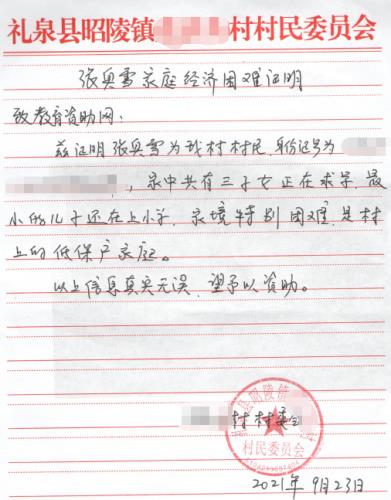 礼泉县昭陵镇 村村民委员会
张奥雪家庭经济困难证明
致教育资助网:
兹证明张奥雪为我村村民,身份证号为
,家中共有三子女正在求学,最
小的儿子还在上小学,家境特别困难,是村
上的低保户家庭。
以上信息真实无误,望予以资助。
礼泉县昭陵镇
村村委会
村民委员会
2021年9月23日